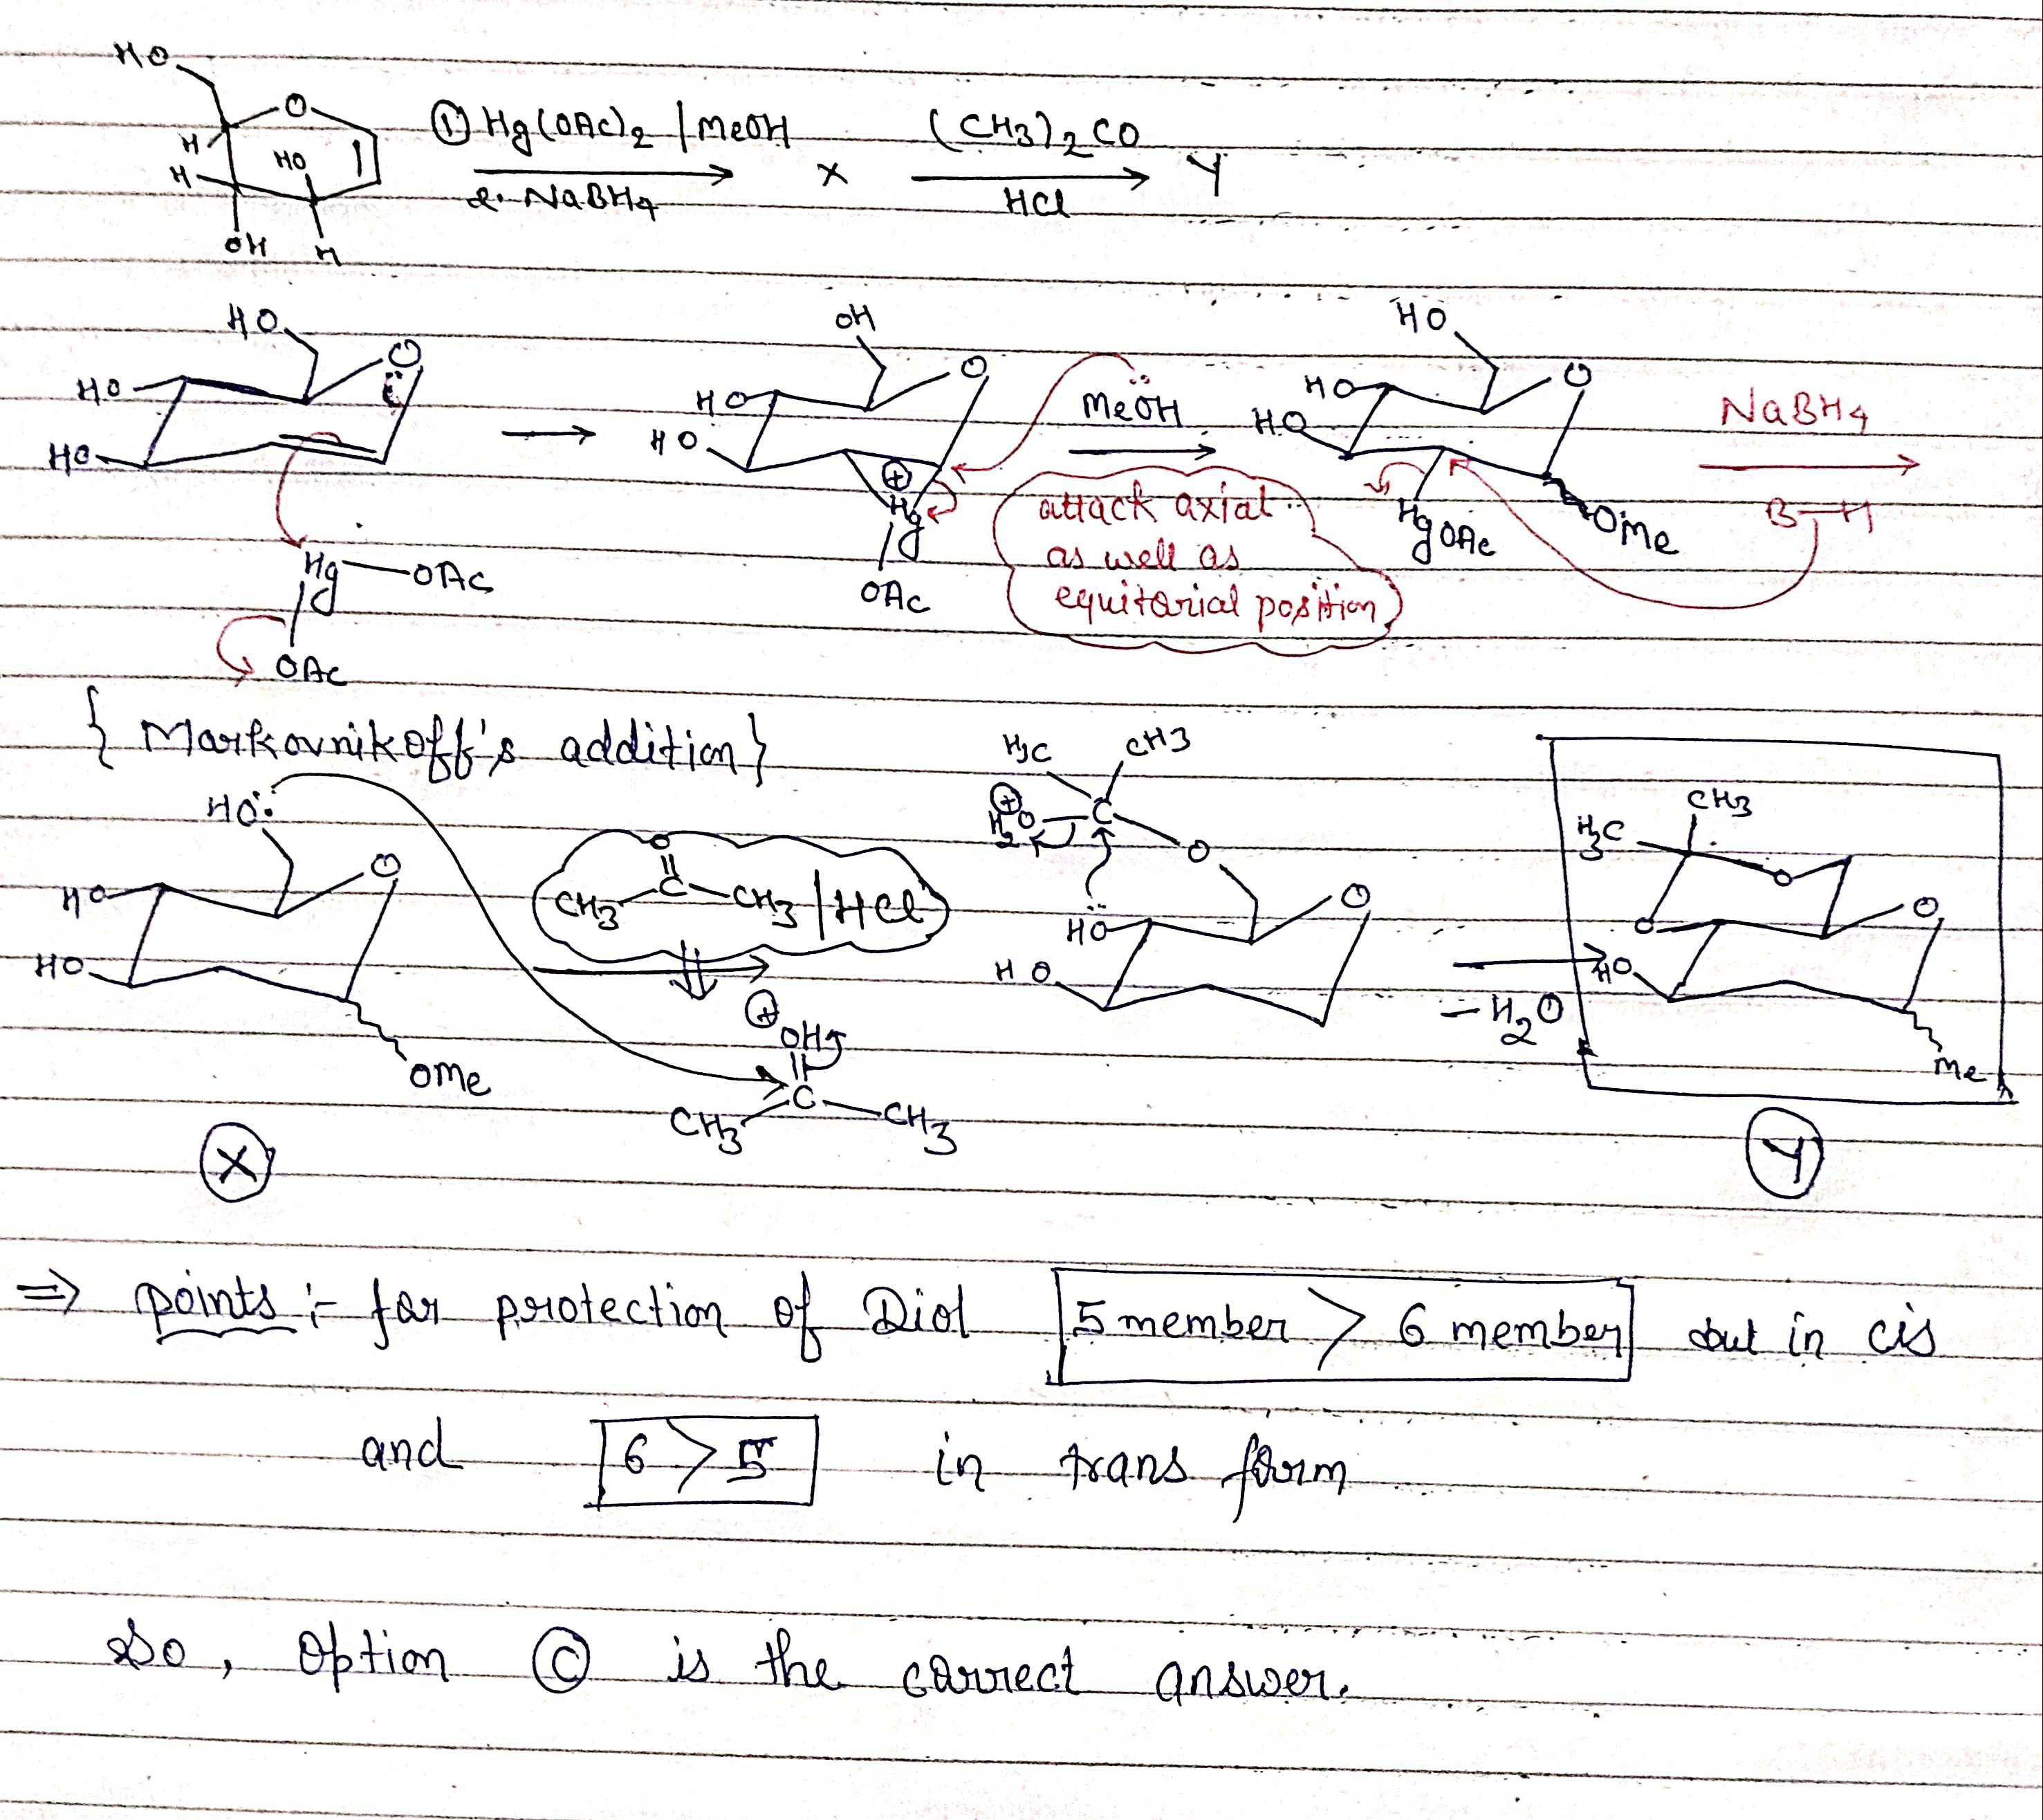 HO
O
① Hg(OAc)2 | MeOH
(CH3)2 CO
H
HO
H
x
Y
2. NaBH4
HCl
OH H
HO O
HO
HO
OH
O
HO
HO
MeOH
HO
O
HO
HO
NaBH4
B-H
Hg
OAc
attack axial
as well as
equitorial position
HgOAc
OMe
Hg—OAc
OAc
{ Markovnikoff's addition }
H3C CH3
H2O C
O
HO
O
HO
HO
HO
O
CH3 C CH3 | HCl
O
HO
HO
O
-H2O
H3C CH3
O
O
O
HO
Me
OMe
OH
CH3 C CH3
X
Y
⇒ points :- for protection of Diol 5 member > 6 member but in cis
and 6 > 5 in trans form
So, Option Ⓒ is the correct answer.